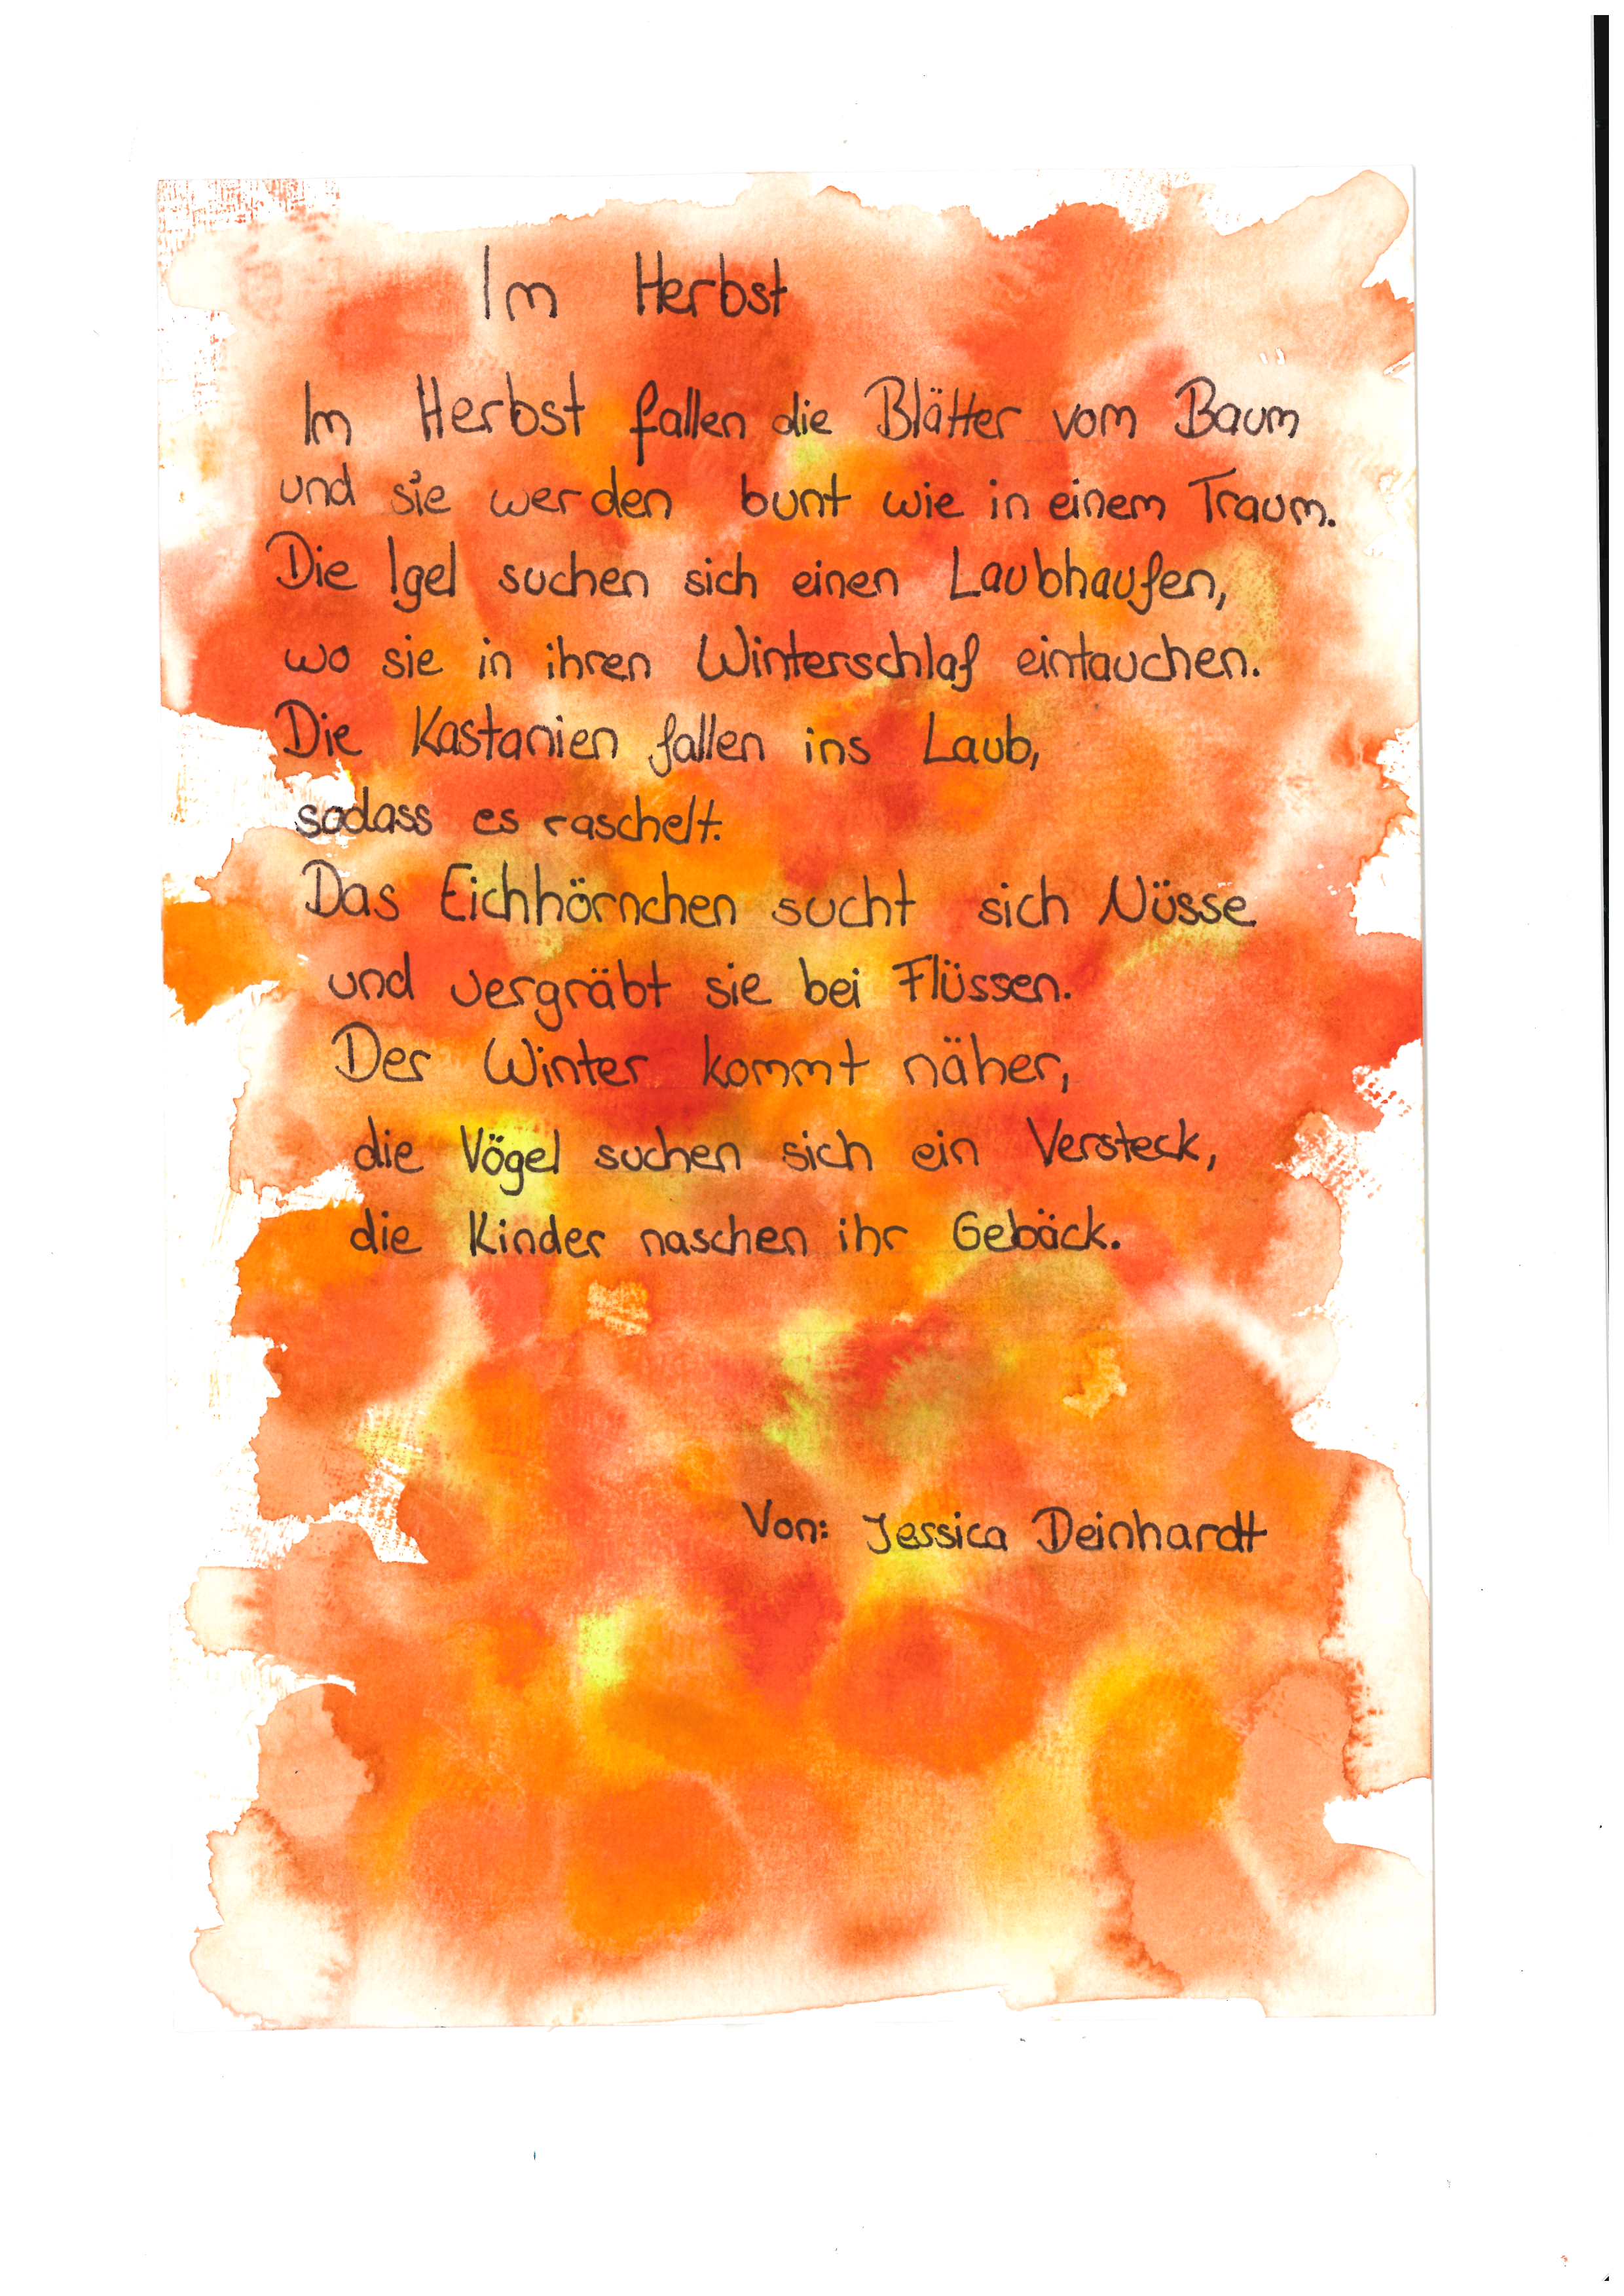 Im Herbst
Im Herbst fallen die Blätter vom Baum
und sie werden bunt wie in einem Traum.
Die Igel suchen sich einen Laubhaufen,
wo sie in ihren Winterschlaf eintauchen.
Die Kastanien fallen ins Laub,
sodass es raschelt.
Das Eichhörnchen sucht sich Nüsse
und vergräbt sie bei Flüssen.
Der Winter kommt näher,
die Vögel suchen sich ein Versteck,
die Kinder naschen ihr Gebäck.
Von: Jessica Deinhardt